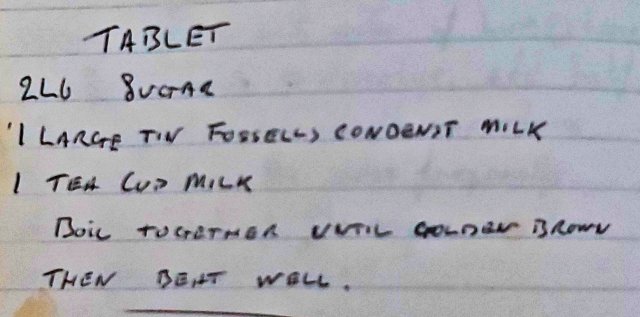 TABLET
2LB SUGAR
1 LARGE TIN FUSSELLS CONDENST MILK
1 TEA CUP MILK
BOIL TOGETHER UNTIL GOLDEN BROWN
THEN BEAT WELL.